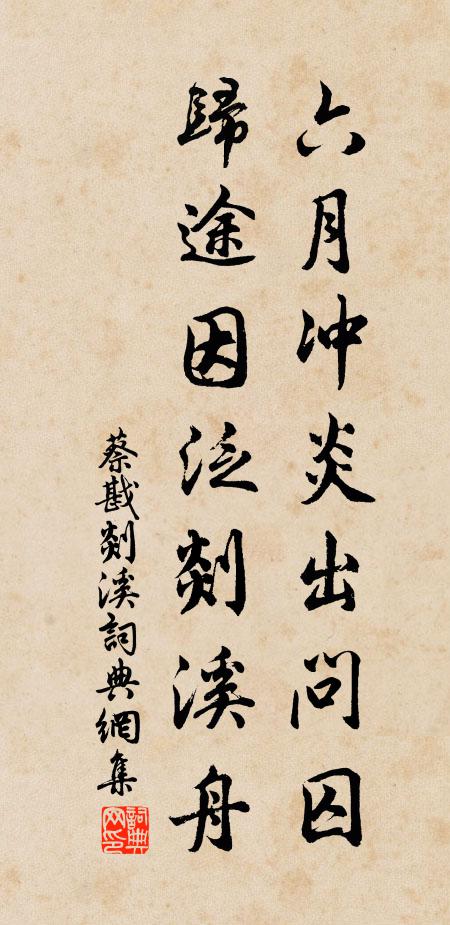 六月冲炎出問囚
歸途因泛剡溪舟
蔡戡剡溪詞典網集
詞典网印